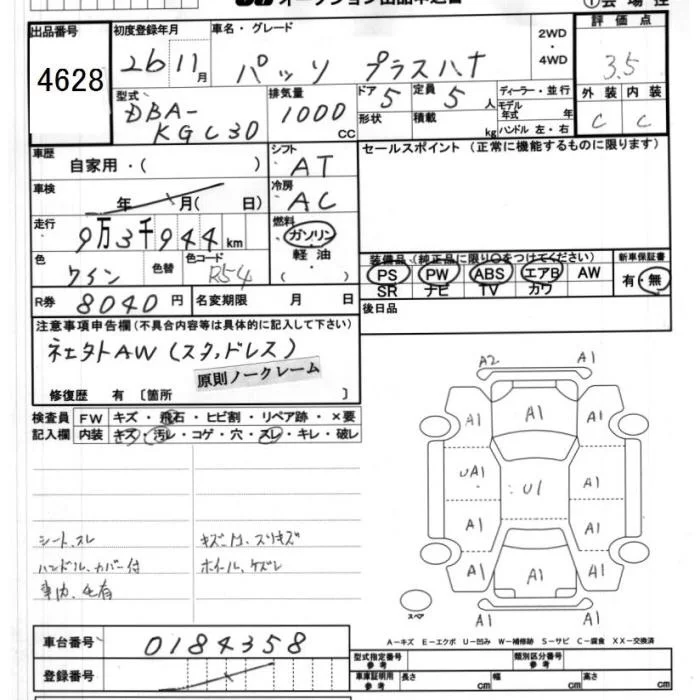 出品番号
4628
初度登録年月
26 11月
車名・グレード
パッソ プラスハナ
2WD
・
4WD
評価点
3.5
外装 内装
C C
型式
DBA-
KGC30
排気量
1000
CC
ドア 5
定員 5 人
形状
積載 kg
ディーラー・並行
モデル年式 年
ハンドル 左・右
車歴
自家用・( )
シフト
AT
セールスポイント (正常に機能するものに限ります)
車検
年 月( 日)
冷房
AC
走行
9万3千944km
燃料
ガソリン
軽油
( )
色
ワイン
色替
色コード
R54
装備品 (純正品に限り○をつけてください)
PS PW ABS エアB AW
SR ナビ TV カワ
新車保証書
有・無
R券 8040円
名変期限 月 日
後日品
注意事項申告欄(不具合内容等は具体的に記入して下さい)
AW (スタッドレス)
原則ノークレーム
修復歴 有 〔箇所 〕
検査員
記入欄
FW キズ・飛石・ヒビ割・リペア跡・×要
内装 キズ・汚レ・コゲ・穴・スレ・キレ・破レ
シート、スレ
ハンドル、カバー付
車内、毛有
キズ、凹、スリキズ
ホイール、ケズレ
A2 A1
A1 A1 A1
UA1 U1 A1
A1 A1
A1 A1 A1
A1
スペア
A-キズ E-エクボ U-凹み W-補修跡 S-サビ C-腐食 XX-交換済
車台番号 0184358
登録番号
型式指定番号
参考
類別区分番号
参考
車庫証明用
参考
長さ cm 幅 cm 高さ cm